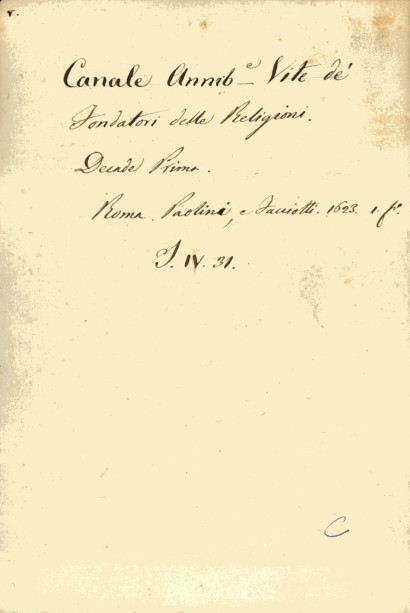 v.
Canale Annib.e Vite de'
Fondatori delle Religioni.
Decade Prima.
Roma. Paolini, e Facciotti. 1623. 1. fo.
J. IV. 31.
C